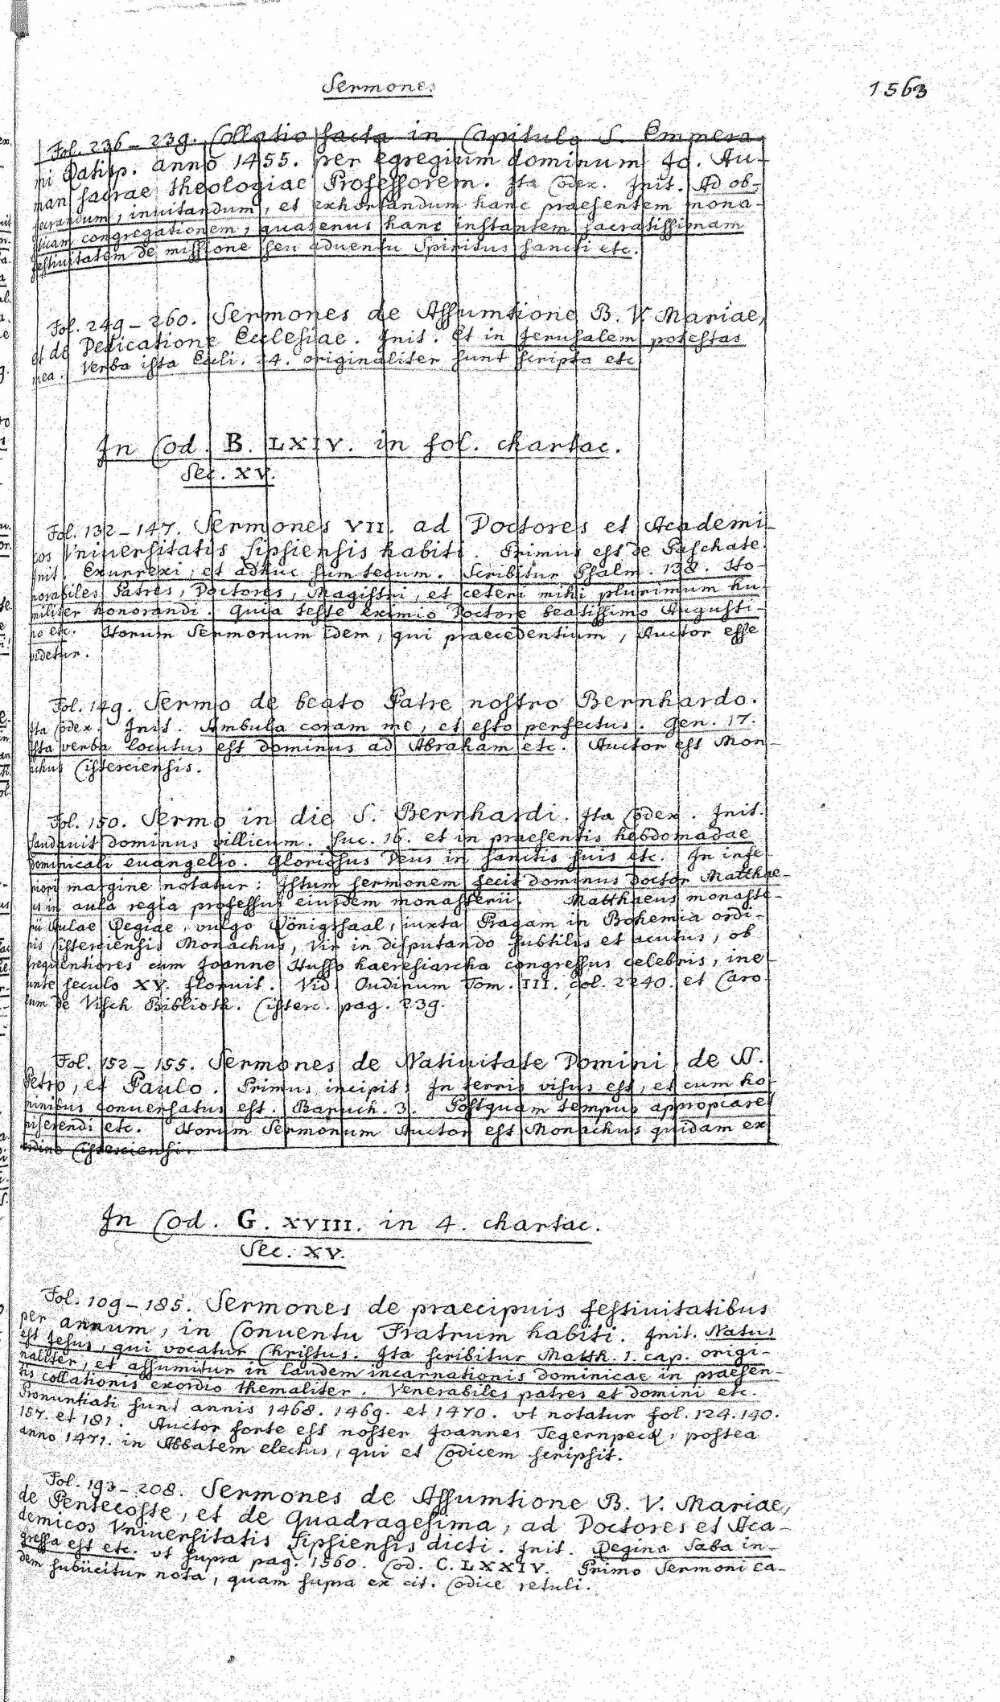 Sermones
1563
Fol. 236–239. Collatio facta in Capitulo S. Emmera-
mi Ratisp. anno 1455. per egregium dominum Jo. Au-
man sacrae theologiae Professorem. Ita Codex. Init. Ad ob-
secrandum, inuitandum, et exhortandum hanc praesentem mona-
sticam congregationem, quatenus hanc instantem sacratissimam
festiuitatem de missione seu aduentu Spiritus sancti etc.
Fol. 249–260. Sermones de Assumtione B. V. Mariae,
et de Dedicatione Ecclesiae. Init. Et in Jerusalem potestas
mea. Verba ista Eccli. 24. originaliter sunt scripta etc
In Cod. B. LXIV. in fol. chartac.
Sec. XV.
Fol. 132–147. Sermones VII. ad Doctores et Academi-
cos Vniuersitatis Lipsiensis habiti. Primus est de Paschate.
Init. Exurrexi, et adhuc sum tecum. Scribitur Psalm. 138. Ho-
norabiles Patres, Doctores, Magistri, et ceteri mihi plurimum hu-
militer honorandi. Quia teste eximio Doctore beatissimo Augusti-
no etc. Horum Sermonum idem, qui praecedentium, Auctor esse
videtur.
Fol. 149. Sermo de beato Patre nostro Bernhardo.
Ita Codex. Init. Ambula coram me, et esto perfectus. Gen. 17.
Ista verba locutus est dominus ad Abraham etc. Auctor est Mon-
achus Cisterciensis.
Fol. 150. Sermo in die S. Bernhardi. Ita Codex. Init.
Laudauit dominus villicum. Luc. 16. et in praesentis hebdomadae
dominicali euangelio. Gloriosus Deus in sanctis suis etc. In infe-
riori margine notatur: Istum sermonem fecit dominus Doctor Matthae-
us in aula regia professus eiusdem monasterii. Matthaeus monaste-
rii Aulae Regiae, vulgo Königssaal, iuxta Pragam in Bohemia ordi-
nis Cisterciensis Monachus, vir in disputando subtilis et acutus, ob
frequentiores cum Joanne Husso haeresiarcha congressus celebris, ine-
unte seculo XV. floruit. Vid. Oudinum Tom. III. col. 2240. et Caro-
lum de Visch Biblioth. Cisterc. pag. 239.
Fol. 152–155. Sermones de Natiuitate Domini, de SS.
Petro, et Paulo. Primus incipit: In terris visus est, et cum ho-
minibus conuersatus est. Baruch. 3. Postquam tempus appropiaret
miserendi etc. Horum Sermonum Auctor est Monachus quidam ex
ordine Cisterciensi.
In Cod. G. XVIII. in 4. chartac.
Sec. XV.
Fol. 109–185. Sermones de praecipuis festiuitatibus
per annum, in Conuentu Fratrum habiti. Init. Natus
est Jesus, qui vocatur Christus. Ita scribitur Matth. 1. cap. origi-
naliter, et assumitur in laudem incarnationis dominicae in praesen-
tis collationis exordio thematiter. Venerabiles patres et domini etc.
Pronuntiati sunt annis 1468. 1469. et 1470. vt notatur fol. 124. 140.
157. et 181. Auctor forte est noster Joannes Tegernpeck, postea
anno 1471. in Abbatem electus, qui et Codicem scripsit.
Fol. 193–208. Sermones de Assumtione B. V. Mariae,
de Pentecoste, et de Quadragesima, ad Doctores et Aca-
demicos Vniuersitatis Lipsiensis dicti. Init. Regina Saba in-
gressa est etc. vt supra pag. 1560. Cod. C. LXXIV. Primo Sermoni ea-
dem subiicitur nota, quam supra ex cit. Codice retuli.